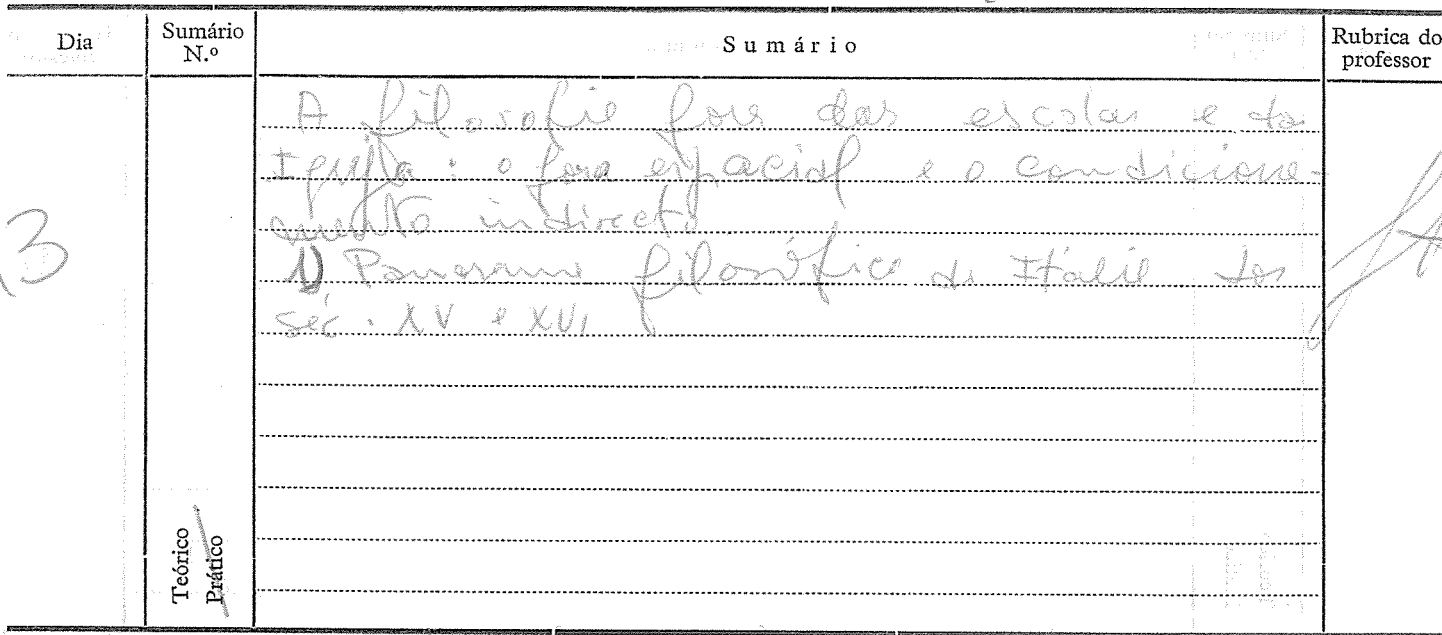 Dia
Sumário N.º
Sumário
Rubrica do professor
A filosofia fora das escolas e da
Igreja: o fora espacial e o condiciona-
mento indirecto
1) Panorama filosófico da Itália dos
séc. XV e XVI
3
Teórico
Prático